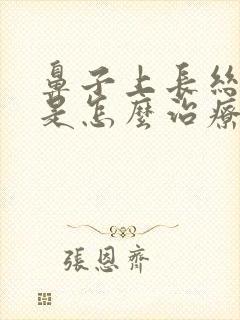 鼻子上長絲
是怎麼治療
張恩齊